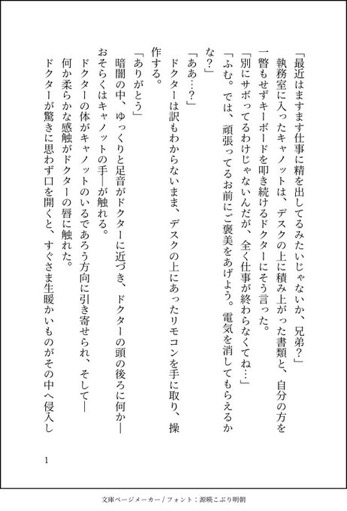 「最近はますます仕事に精を出してるみたいじゃないか、兄弟？」
執務室に入ったキャノットは、デスクの上に積み上がった書類と、自分の方を
一瞥もせずキーボードを叩き続けるドクターにそう言った。
「別にサボってるわけじゃないんだが、全く仕事が終わらなくてね…」
「ふむ。では、頑張ってるお前にご褒美をあげよう。電気を消してもらえるか
な？」
「ああ…？」
ドクターは訳もわからないまま、デスクの上にあったリモコンを手に取り、操
作する。
「ありがとう」
暗闇の中、ゆっくりと足音がドクターに近づき、ドクターの頭の後ろに何か―
おそらくはキャノットの手―が触れる。
ドクターの体がキャノットのいるであろう方向に引き寄せられ、そして―
何か柔らかな感触がドクターの唇に触れた。
ドクターが驚きに思わず口を開くと、すぐさま生暖かいものがその中へ侵入し
1
文庫ページメーカー / フォント：源暎こぶり明朝